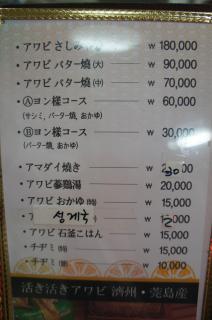 ・アワビ さしみ ₩ 180,000
・アワビ バター焼 (大) ₩ 90,000
・アワビ バター焼 (中) ₩ 70,000
・Ⓐヨン様コース ₩ 60,000
(サシミ, バター焼, おかゆ)
・Ⓑヨン様コース ₩ 30,000
(バター焼, おかゆ)
・アマダイ焼き ₩
・アワビ蔘鶏湯 ₩ 20,000
・アワビ おかゆ (特) ₩ 15,000
성게국 ₩ 12
・アワビ 石釜ごはん ₩ 15,000
・チヂミ (特) ₩ 15,000
・チヂミ ₩ 10,000
活き活きアワビ 濟州・莞島産